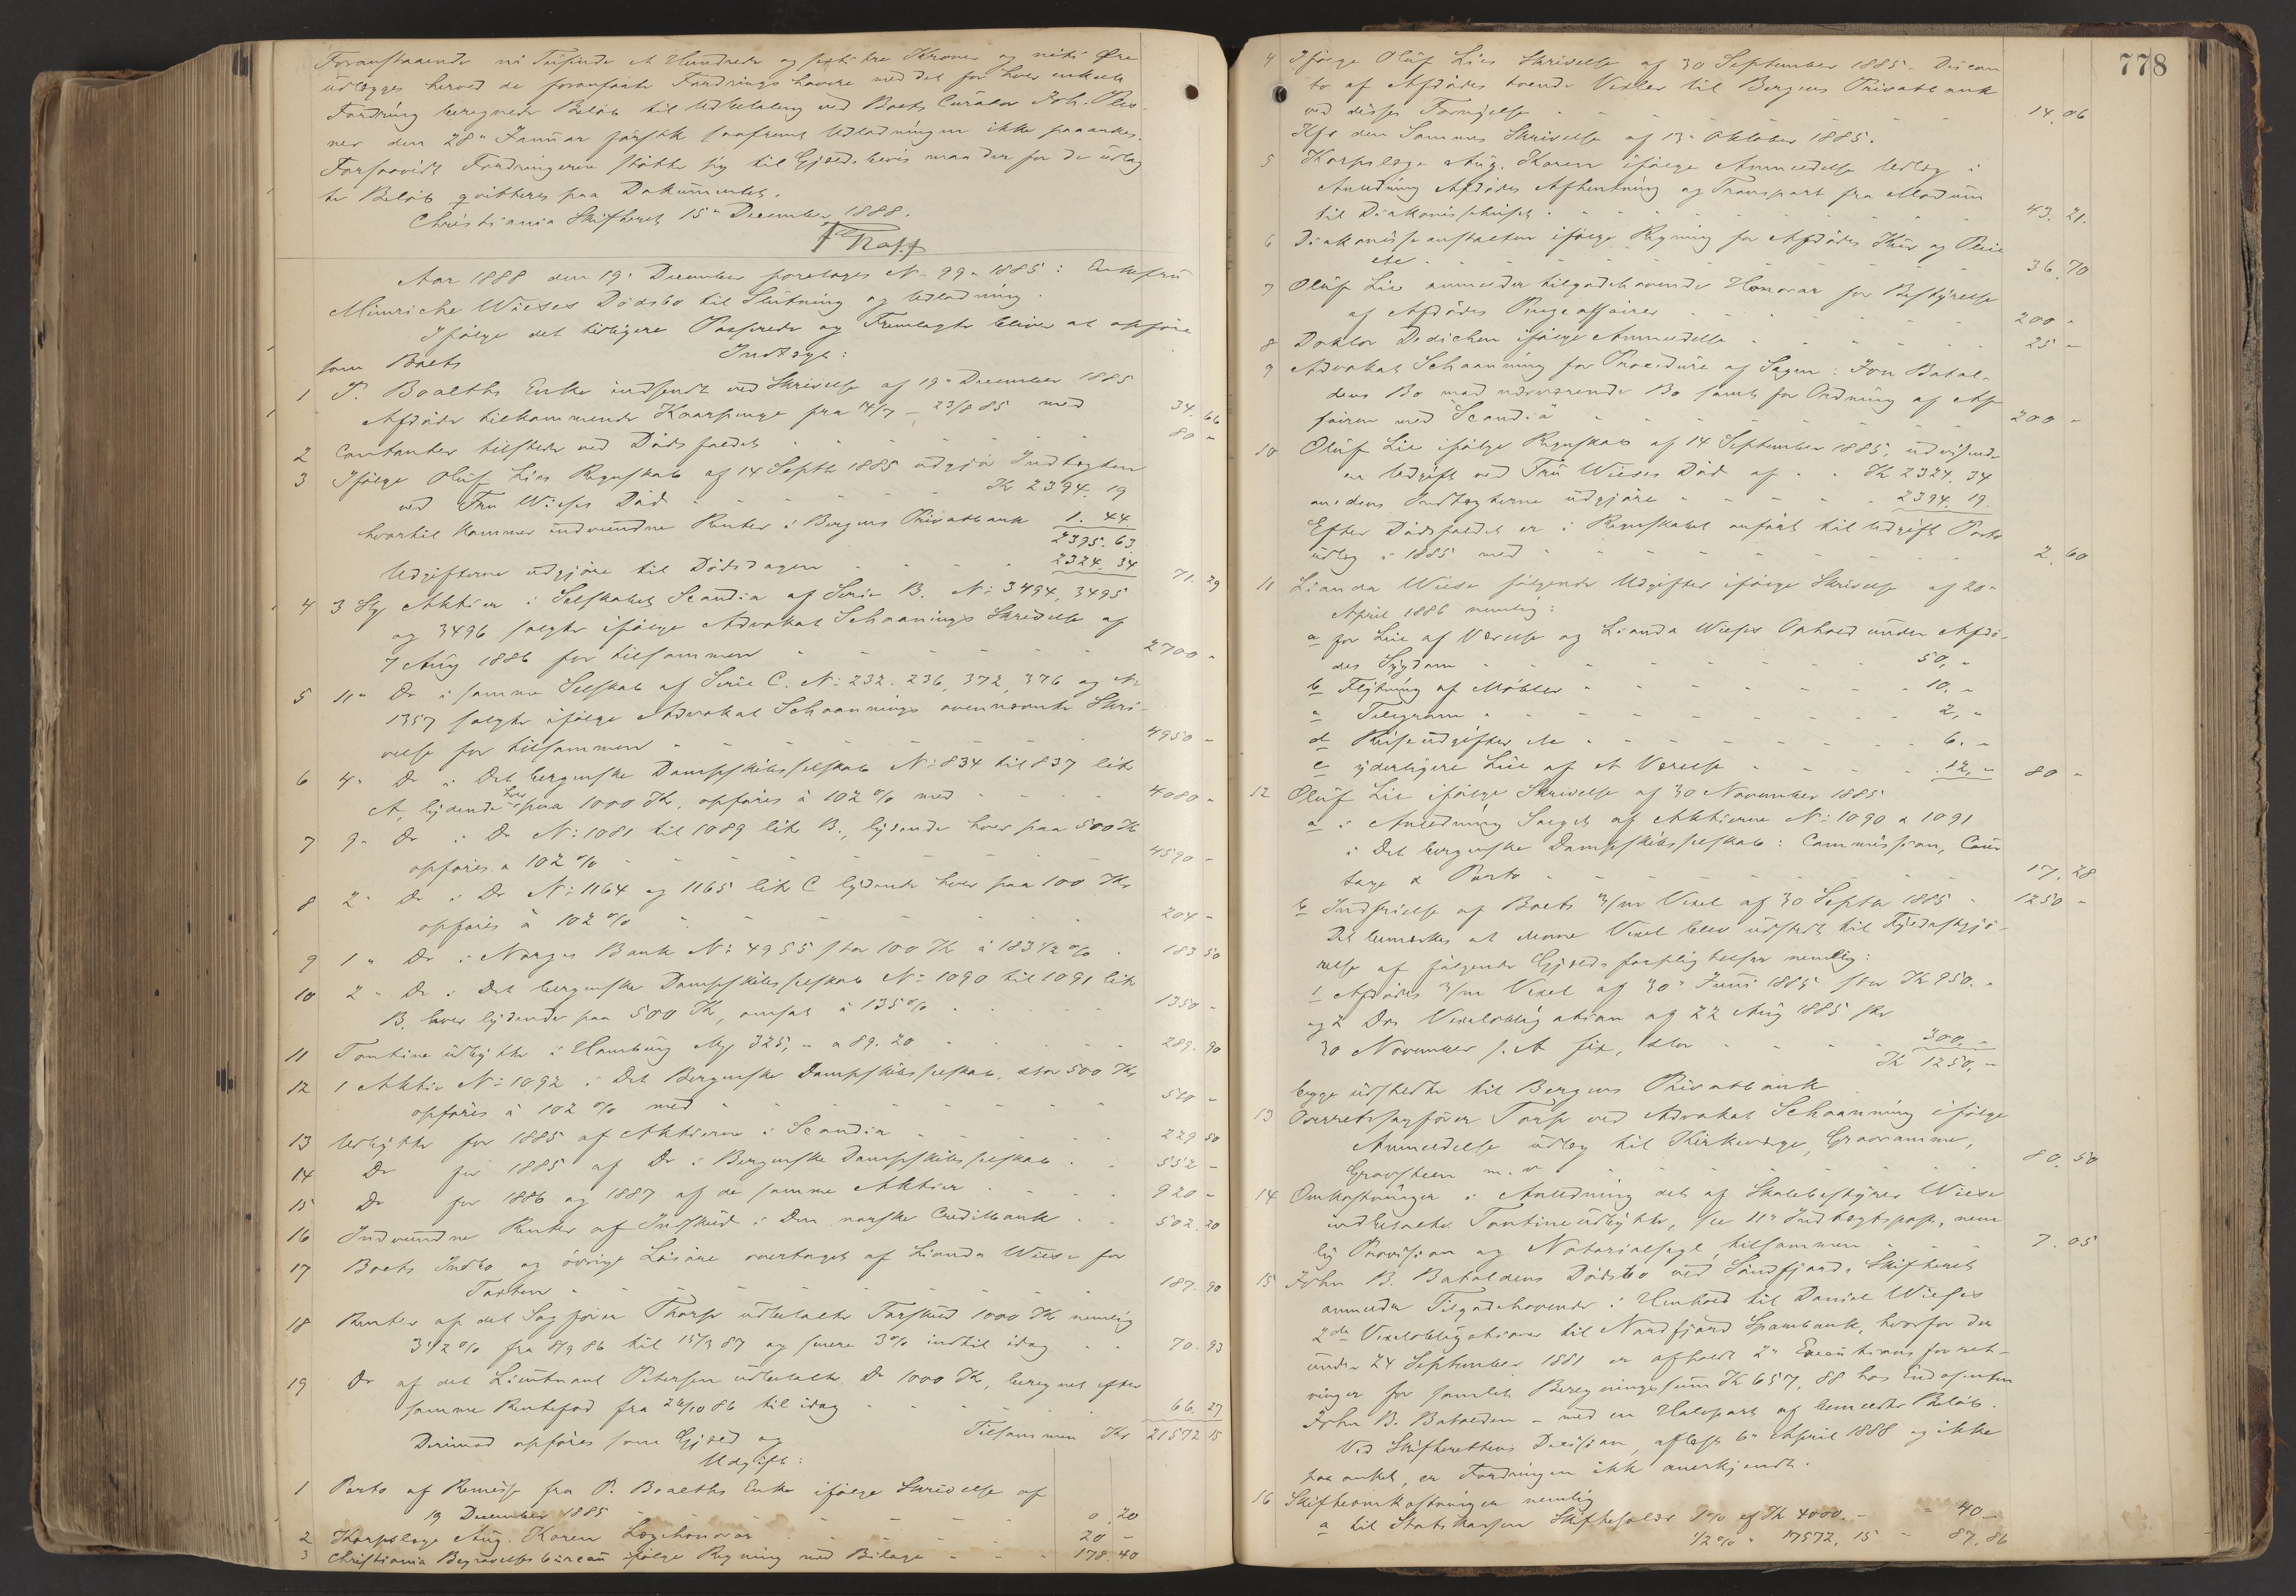 Foranstaaende  Tusinde et Hundrede og seksti tre Kroner og niti Øre
udlægges herved de foranførte Fordringshavere med det for hver enkelt
Fordring beregnede Beløb til Udbetaling ved Boets Curator Joh. 
 den 28de Januar førstk saafremt Udlodningen ikke paaankes.
Forsaavidt Fordringerne støtte sig til Gjældsbevis maa der for de udlag
te Beløb qvitteres paa Dokumentet.
Christiania Skifteret 15de December 1888.

Aar 1888 den 19de December foretoges No 99 - 1885: Enkefru
Minriche Wieses Dødsbo til Slutning og Udlodning.
Ifølge det tidligere Passerede og Fremlagte bliver at opføre
som Boets Indtægt:
1 P. Boalths Enke indsendt ved Skrivelse af 19de December 1885
Afdøde tilkommende Kaarpenge fra 14/7 - 23/8 85 med 34. 66
2 Contanter tilstede ved Dødsfaldet 80 -
3 Ifølge Oluf Lies Regnskab af 14 Septbr 1885 udgjør Indtægten
ved Fru Wieses Død Kr 2394. 19
hvortil kommer indvundne Renter i Bergens Privatbank 1. 44
2395. 63
Udgifterne udgjøre til Dødsdagen 2324. 34 71. 29
4 3 Stk Aktier i Selskabet Scandia af Serie B. No 3494, 3495
og 3496 solgte ifølge Advokat Schaanings Skrivelse af
7 Aug 1886 for tilsammen 2700 -
5 11 - Do i samme Selskab af Serie C. No 232. 236, 372, 376 og No
1357 solgte ifølge Advokat Schaannings ovennævnte Skri-
velse for tilsammen 4950 -
6 4 - Do i Det bergenske Dampskibsselskab No 834 til 837 litr
A, lydende hver paa 1000 Kr, opføres à 102 % med 4080 -
7 9 - Do i Do No 1081 til 1089 litr B., lydende hver paa 500 Kr
opføres a 102 % 4590 -
8 2 - Do i Do No 1164 og 1165 litr C lydende hver paa 100 Kr
opføres à 102 % 204 -
9 1 - Do i Norges Bank No 4955 stor 100 Kr à 183 1/2 % 183 50
10 2 - Do i Det bergenske Dampskibsselskab No 1090 til 1091 litr
B. hver lydende paa 500 Kr, omsat à 135 % 1350 -
11 Tontine udbytte i Hamburg Mk 325, - a 89. 20 289. 90
12 1 Aktie No 1092 i Det Bergenske Dampskibsselskab, stor 500 Kr
opføres à 102 % med 510 -
13 Udbytte for 1885 af Aktierne i Scandia 229 50
14 Do for 1885 af Do i Bergenske Dampskibsselskab 552 -
15 Do for 1886 og 1887 af de samme Aktier 920 -
16 Indvundne Renter af Indskud i Den norske Creditbank 502. 20
17 Boets Indbo og øvrige Løsøre overtaget af Lianda Wiese for
Taxten 187. 90
18 Renter af det Sagfører Thorp udbetalte Forskud 1000 Kr nemlig
3 1/2 % fra 8/9 86 til 15/3 87 og senere 3 % indtil idag 70. 93
19 Do af det Lieutnant Petersen udbetalte Do 1000 Kr, beregnet efter
samme Rentefod fra 26/10 86 til idag 66. 27
Tilsammen Kr 21572 15
Derimod opføres som Gjæld og
Udgift:
1 Porto af Remisse fra P. Boalths Enke ifølge Skrivelse af
19 December 1885 0. 20
2 Korpslæge Aug. Koren Lægehonorar 20 -
3 Christiania Begravelsesbureau ifølge Regning med Bilage 178. 40
778
4 Ifølge Oluf Lies Skrivelse af 30 September 1885 - Discon
to af Afdødes tvende Vexler til Bergens Privatbank
ved disses Fornyelse 14. 06
Kfr den Sammes Skrivelse af 13de Oktober 1885.
5 Korpslæge Aug. Koren ifølge Anmeldelse Udlæg i
Anledning Afdødes Afhentning og Transport fra Modum
til Diakonissehuset 43. 21.
6 Diakonisseanstalten ifølge Regning for Afdødes Kur og Pleie
etc 36. 70
7 Oluf Lie anmelder tilgodehavende Honorar for Bestyrelse
af Afdødes Pengeaffairer 200 -
8 Doktor Dedichen ifølge Anmeldelse 25 -
9 Advokat Schaanning for Procedure af Sagen: Jon Batal-
dens Bo mod nærværende Bo samt for Ordning af Af
fairen med Scandia 200 -
10 Oluf Lie ifølge Regnskab af 14 September 1885, udvisende
en Udgift ved Fru Wieses Død af Kr 2324. 34
medens Indtægterne udgjøre 2394. 19.
Efter Dødsfaldet er i Regnskabet anført til Udgift Porto
udlæg i 1885 med 2. 60
11 Lianda Wiese følgende Udgifter ifølge Skrivelse af 20de
April 1886 nemlig:
a for Leie af Værelse og Lianda Wieses Ophold under Afdø-
des Sygdom 50, -
b Flytning af Møbler 10. -
c Telegram 2, -
d Reiseudgifter etc 6. -
e yderligere Leie af et Værelse 12, - 80 -
12 Oluf Lie ifølge Skrivelse af 30 November 1885
a i Anledning Salget af Aktierne No 1090 a 1091
i Det bergenske Dampskibsselskab: Commission, Cour
tage & Porto 17. 28
b Indfrielse af Boets 3/m Vexel af 30 Septbr 1885 1250 -
Det bemærkes at denne Vexel blev udstedt til Fyldestgjø-
relse af følgende Gjældsforpligtelser nemlig:
1 Afdødes 3/m Vexel af 30de Juni 1885 stor Kr 950. -
og 2 Dos Vexelobligation af 22 Aug 1885 pr
30 November s. A fix, stor 300, -
Kr 1250, -
begge udstedte til Bergens Privatbank
13 Overretssagfører Torp ved Advokat Schaanning ifølge
Anmeldelse udlæg til Kirkeværge, Gravramme,
Gravsteen m. v 80. 50
14 Omkostninger i Anledning det af Skolebestyrer Wiese
indbetalte Tontineudbytte, se 11te Indtægtspost, nem
lig Provision og Notarialsegl, tilsammen 7. 05
15 John B. Bataldens Dødsbo ved Søndfjords Skifteret
anmelder Tilgodehavende i Henhold til Daniel Wieses
2de Vexelobligationer til Nordfjord Sparebank, hvorfor der
under 24 September 1881 er afholdt 2de Executionsforret-
ninger for samlet Beregningssum Kr 657, 88 hos Endossenten
John B. Batalden - med en Halvpart af bemeldte Beløb.
Ved Skifterettens Decision, afsagt 6te April 1888 og ikke
paaanket, er Fordringen ikke anerkjendt.
16 Skifteomkostninger nemlig
a til Statskassen Skifteafgift 1 % af Kr 4000. - 40 -
1/2 % " 17572, 15 - 87, 86